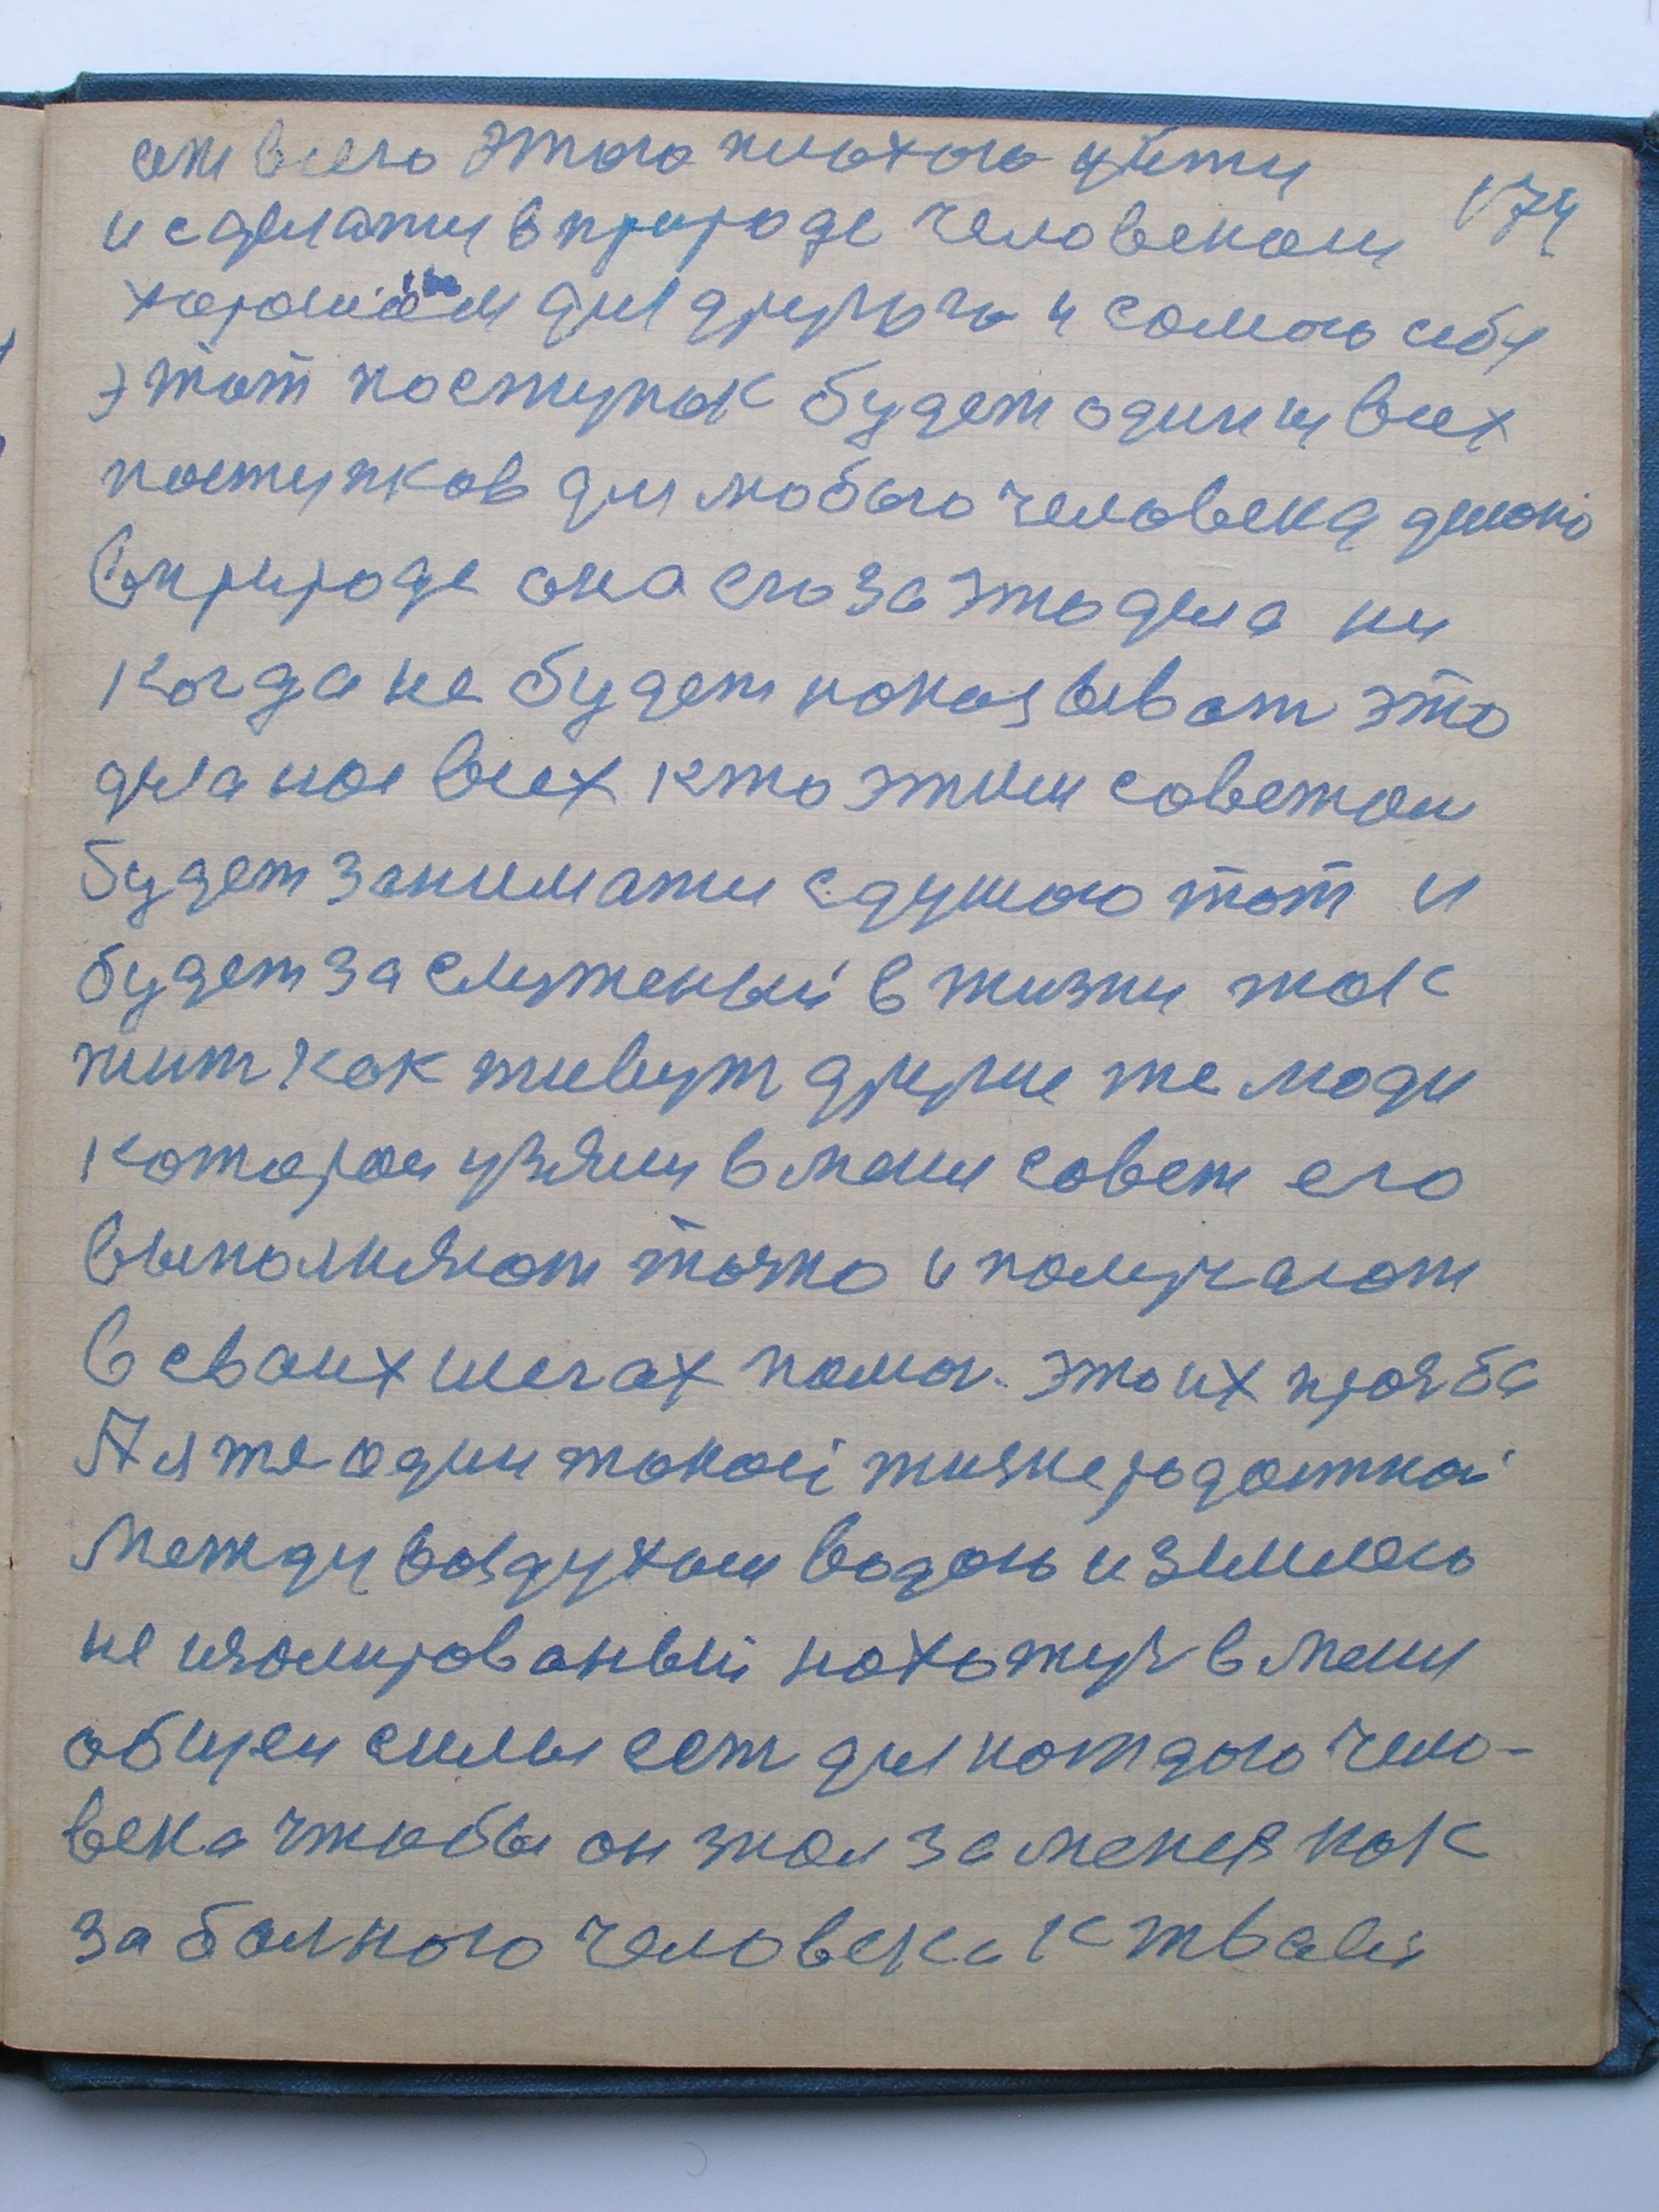 от всего этого плохого уйти
174
и сделати в природе человеком
хорошим для другого и самого себя
этот поступок будет один и всех
поступков для любого человека
в природе она его за это дела ни
когда не будет наказыват это
дела нас всех кто этим советом
будет заниматися душою тот и
будет заслуженый в жизни так
жит как живут другие же люди
которои узяли в мени совет его
выполняют точно и получают
в своих шагах помоч. это их прозба
А я же один такой жизнерадостной
между воздухом водою и землею
не изолированый нахожус в мени
общеи силы ест для каждого чело-
века чтобы он знал за меня как
за болного человека к